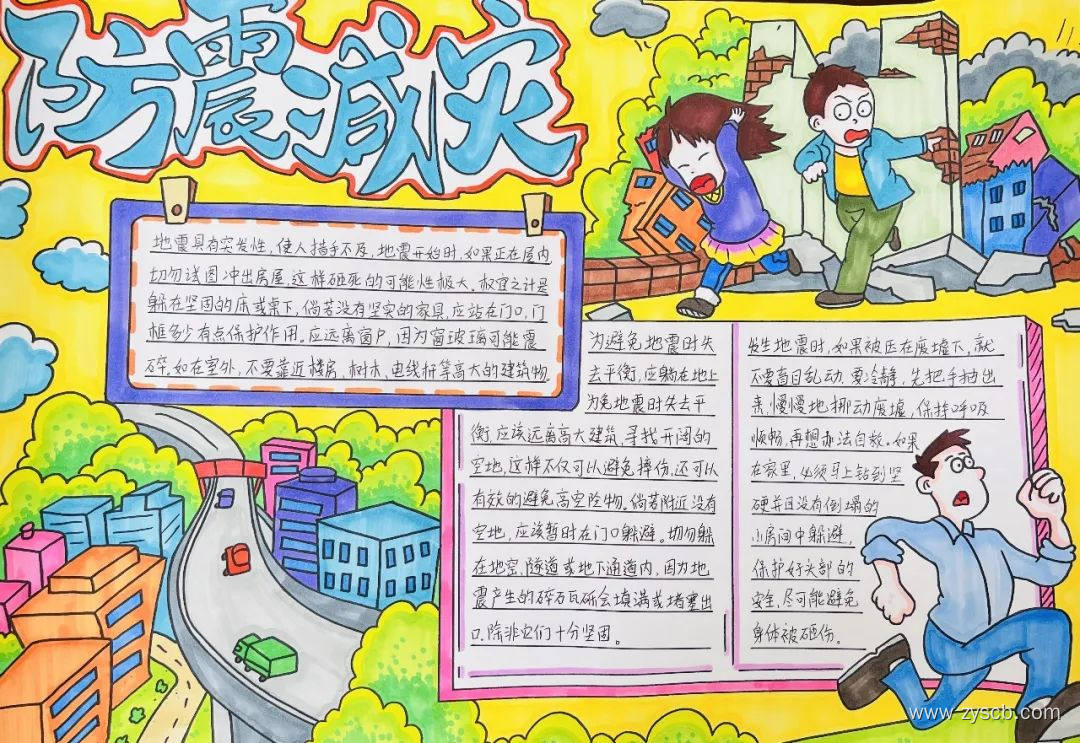 防震减灾
地震具有突发性,使人措手不及,地震开始时,如果正在屋内
切勿试图冲出房屋,这样砸死的可能性极大。权宜之计是
躲在坚固的床或桌下,倘若没有坚实的家具,应站在门口,门
框多少有点保护作用。应远离窗户,因为窗玻璃可能震
碎,如在室外,不要靠近楼房、树木、电线杆等高大的建筑物
为避免地震时失
去平衡,应躺在地上
为免地震时失去平
衡,应该远离高大建筑,寻找开阔的
空地,这样不仅可以避免摔伤,还可以
有效的避免高空险物。倘若附近没有
空地,应该暂时在门口躲避。切勿躲
在地窖、隧道或地下通道内,因为地
震产生的碎石瓦砾会填满或堵塞出
口,除非它们十分坚固。
发生地震时,如果被压在废墟下,就
不要盲目乱动,要冷静,先把手抽出
来,慢慢地挪动废墟,保持呼吸
顺畅,再想办法自救。如果
在家里,必须马上钻到坚
硬并且没有倒塌的
小房间中躲避,
保护好头部的
安全,尽可能避免
身体被砸伤。
www.zyscb.com